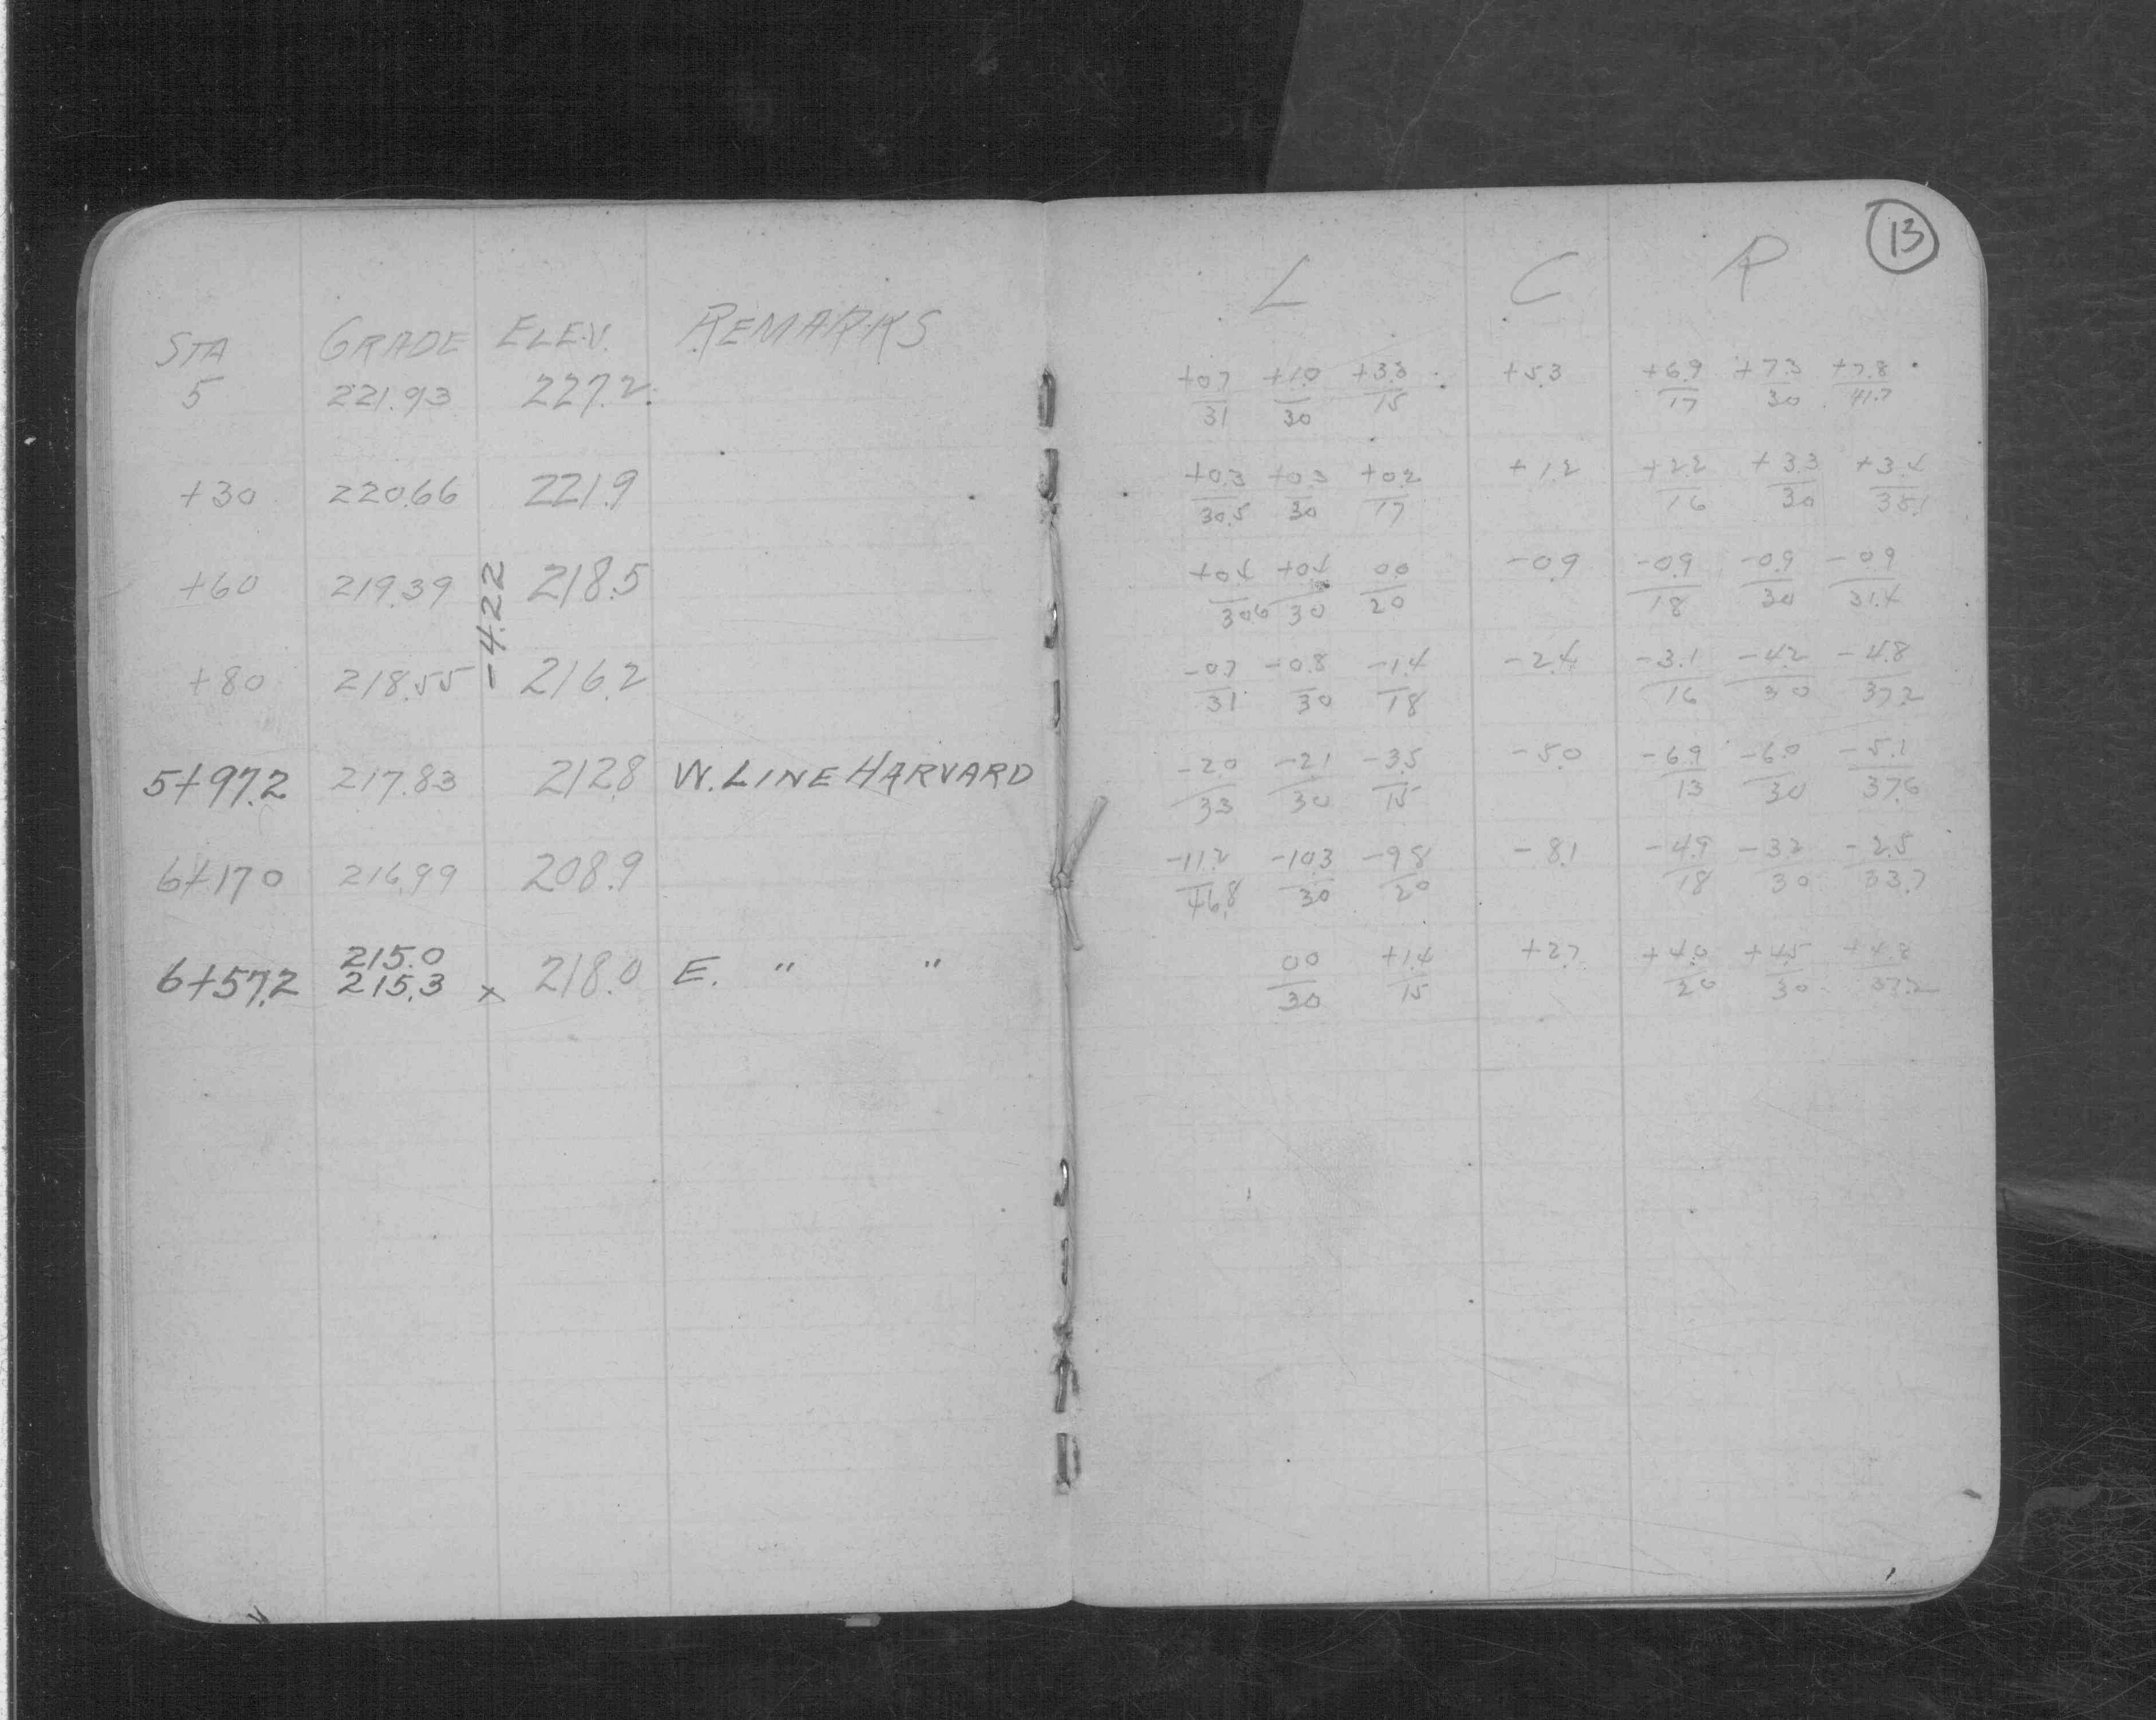 STA GRADE ELEV. REMARKS
5 221.93 227.2
+30 220.66 221.9
+60 219.39 218.5
-4.22
+80 218.55 216.2
5+97.2 217.83 212.8 W. LINE HARVARD
6+170 216.99 208.9
215.0
6+57.2 215.3 x 218.0 E. " "
13
L C R
+0.7 +1.0 +3.3 +5.3 +6.9 +7.3 +7.8
31 30 15 17 30 41.7
+0.3 +0.3 +0.2 +1.2 +2.2 +3.3 +3.4
30.5 30 17 16 30 35.1
+0.4 +0.4 0.0 -0.9 -0.9 -0.9 -0.9
30.6 30 20 18 30 31.4
-0.7 -0.8 -1.4 -2.4 -3.1 -4.2 -4.8
31 30 18 16 30 37.2
-2.0 -2.1 -3.5 -5.0 -6.9 -6.0 -5.1
33 30 15 13 30 37.6
-11.2 -10.3 -9.8 -8.1 -4.9 -3.2 -2.5
46.8 30 20 18 30 33.7
0.0 +1.4 +2.7 +4.0 +4.5 +4.8
30 15 20 30 37.2